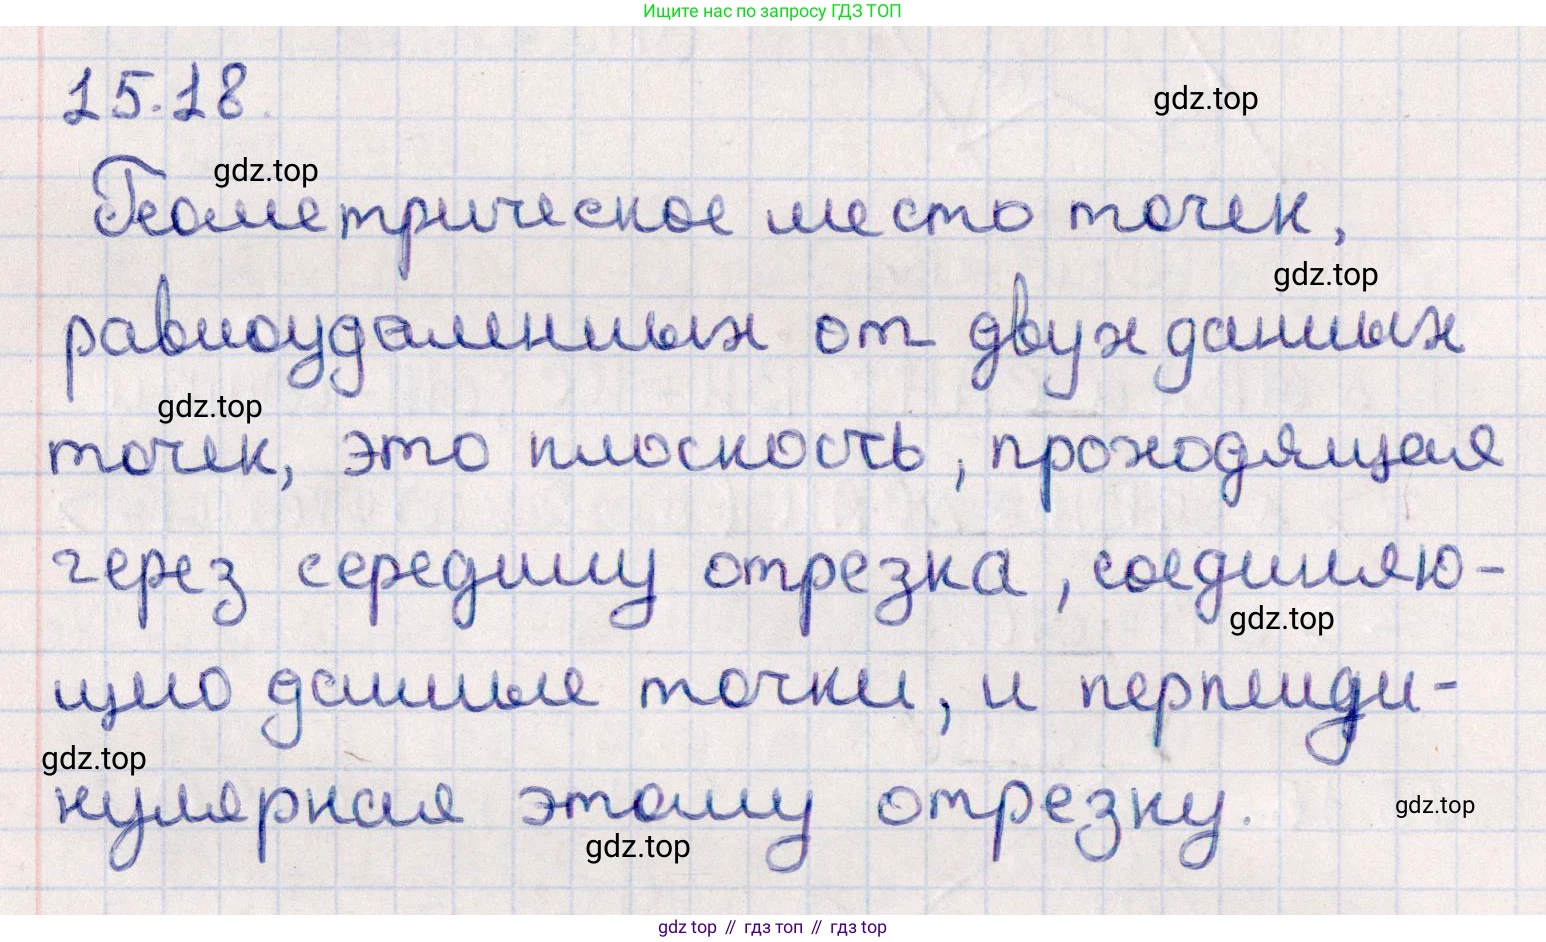 Ищите нас по запросу ГДЗ ТОП
15.18.
gdz.top
gdz.top
Геометрическое место точек,
gdz.top
равноудаленных от двух данных
gdz.top
точек, это плоскость, проходящая
через середину отрезка, соединяю-
gdz.top
щего данные точки, и перпенди-
gdz.top
кулярная этому отрезку.
gdz.top
gdz.top
gdz top // гдз топ // гдз top